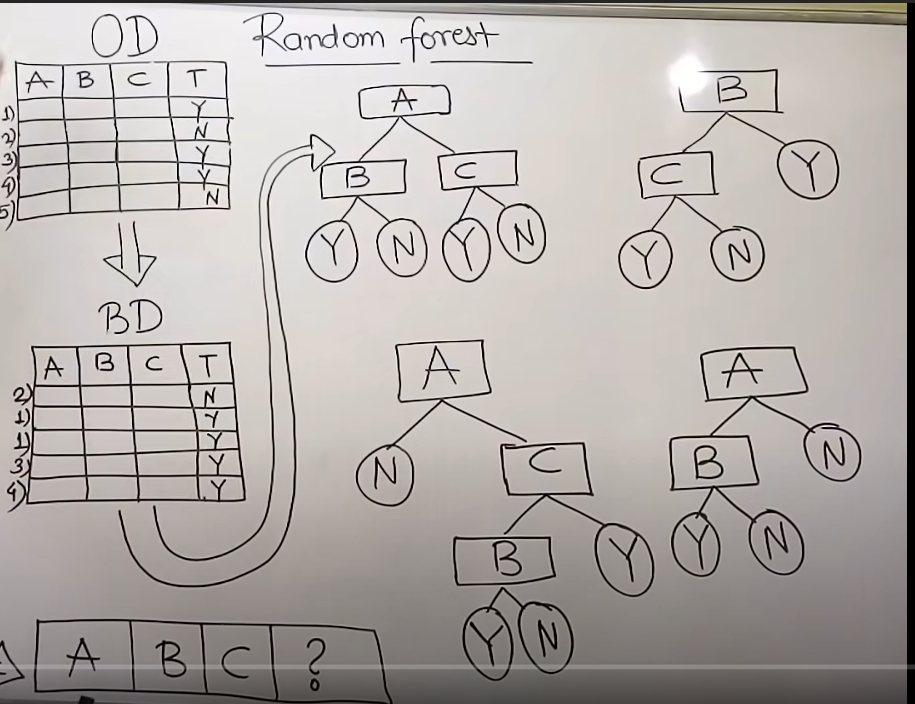 OD
Random forest
A B C T
1) Y
2) N
3) Y
4) Y
5) N
BD
A B C T
2) N
1) Y
1) Y
3) Y
4) Y
A
B C
Y N Y N
B
C Y
Y N
A
N C
B Y
Y N
A
B N
Y N
A B C ?